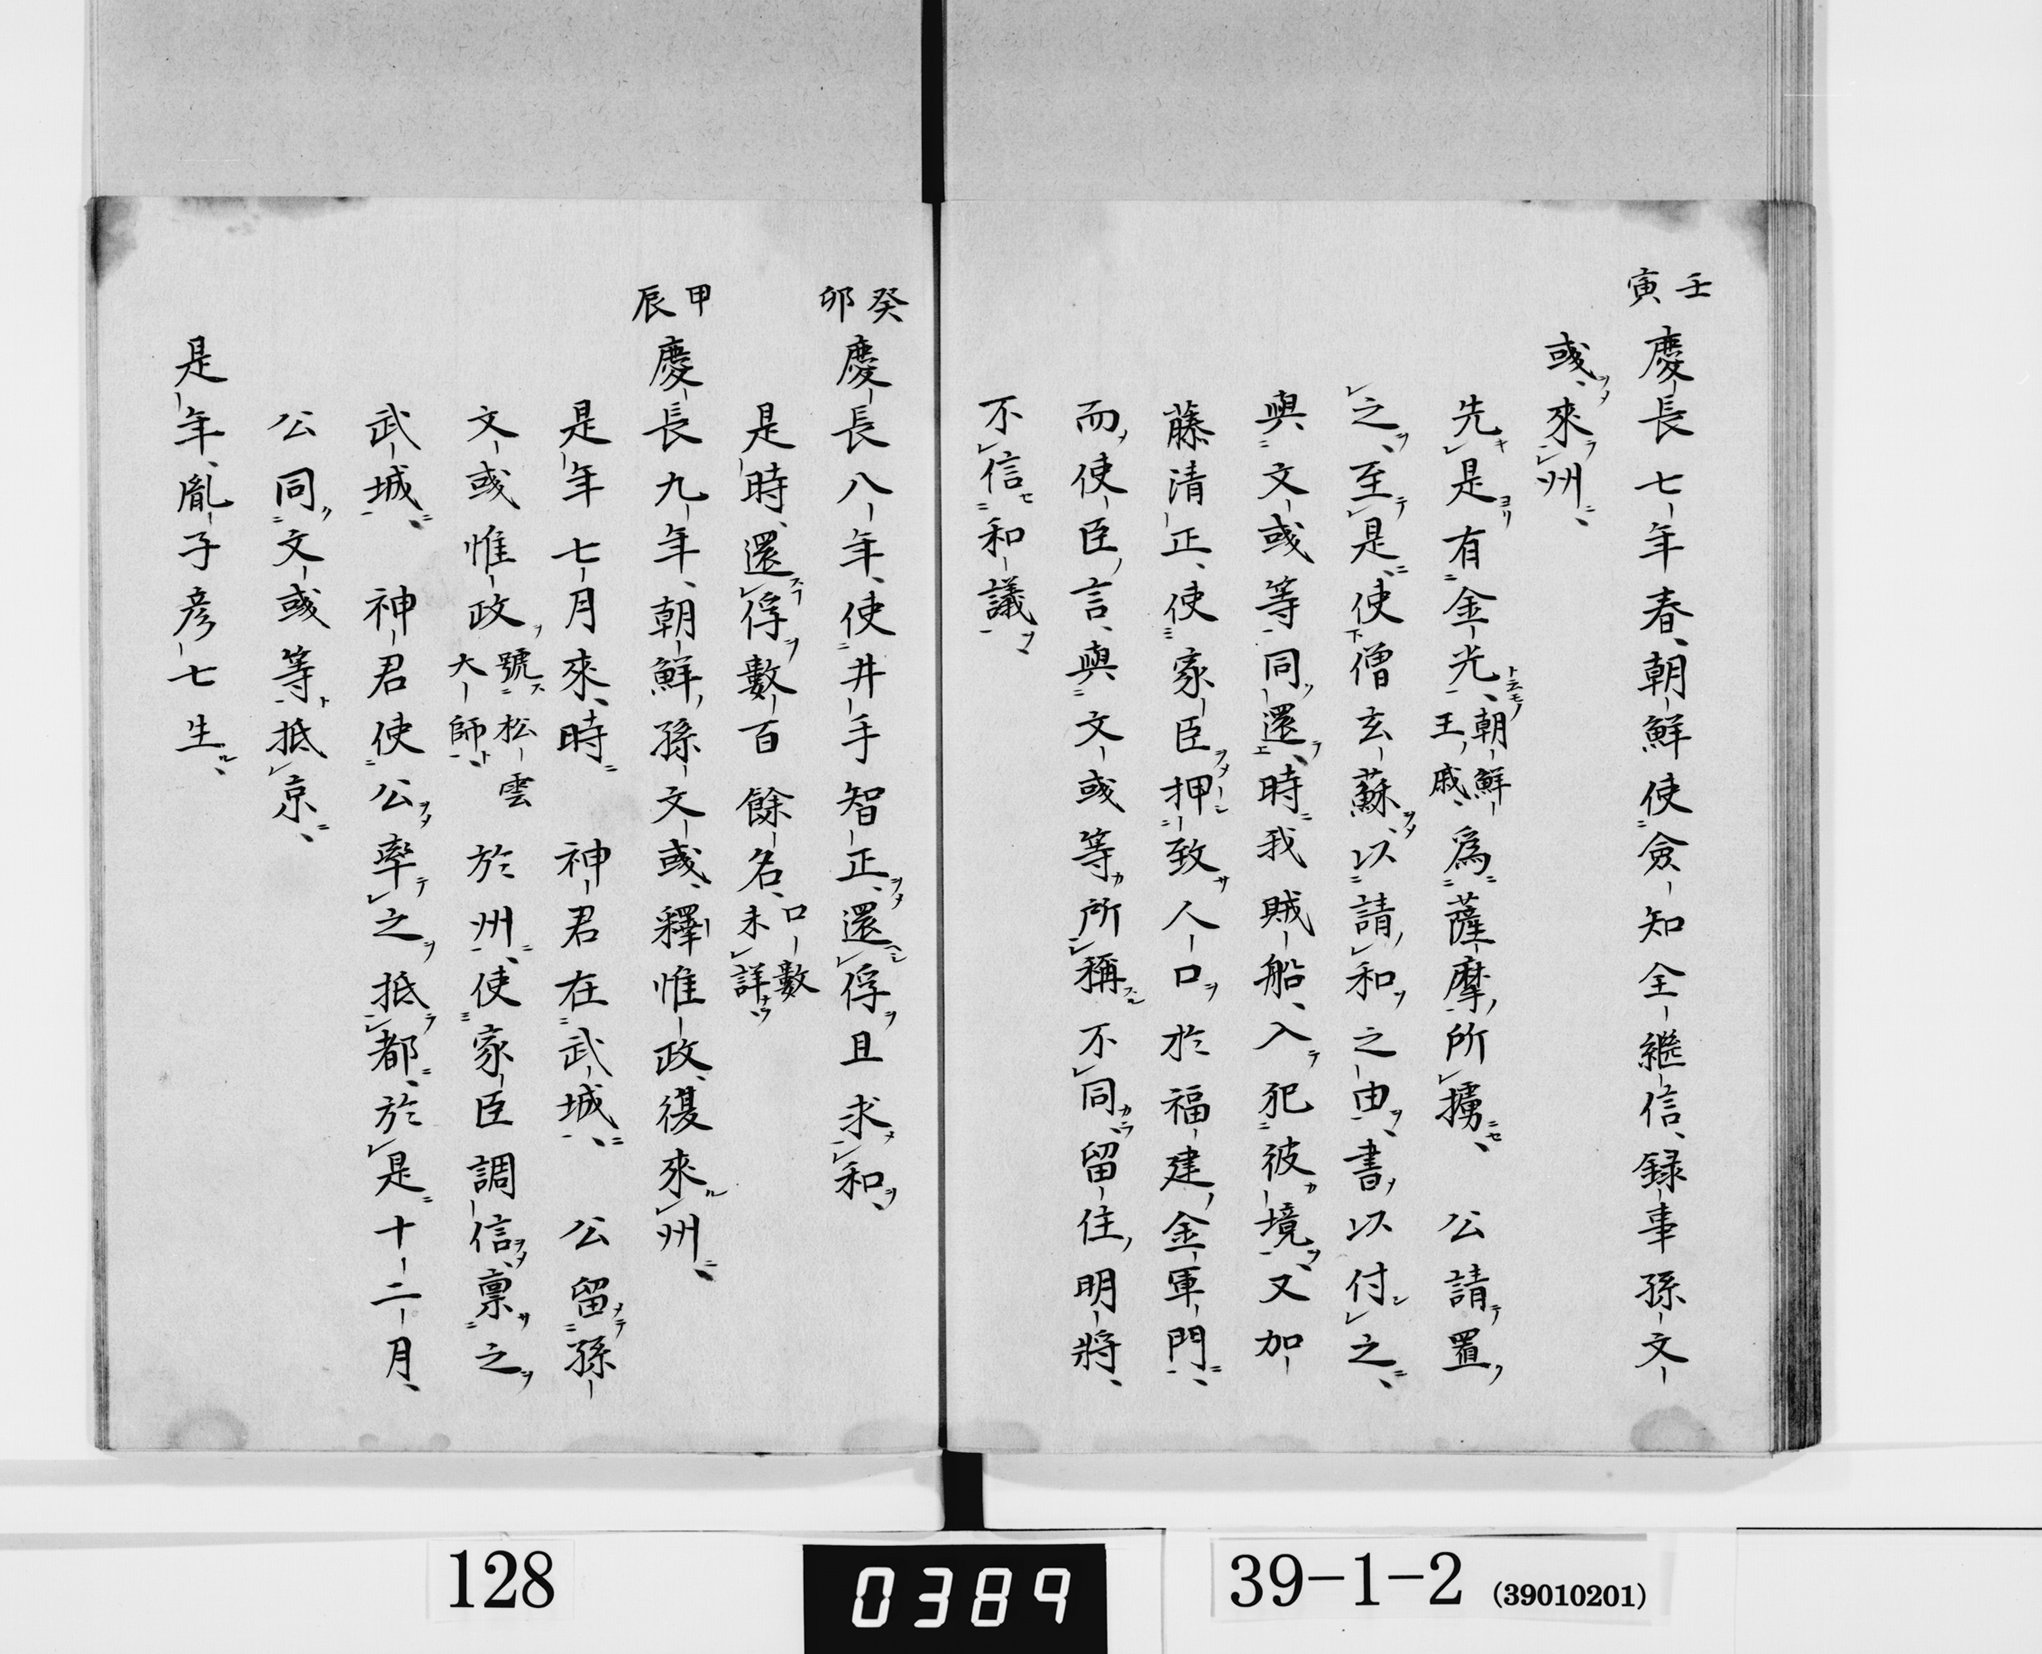 壬寅
慶長七年春朝鮮使僉知全繼信録事孫文
彧來州
先是有金光朝鮮王戚爲薩摩所擄 公請置
之至是使僧玄蘇以請和之由書以付之
與文彧等同還時我賊船入犯彼境又加
藤清正使家臣押致人口於福建金軍門
而使臣言與文彧等所稱不同留住明將
不信和議
癸卯
慶長八年使井手智正還俘且求和
是時還俘數百餘名口數未詳
甲辰
慶長九年朝鮮孫文彧釋惟政復來州
是年七月來時 神君在武城 公留孫
文彧惟政號松雲大師於州使家臣調信稟之
武城 神君使公率之抵都於是十二月
公同文彧等抵京
是年胤子彦七生
128
0389
39-1-2 (39010201)